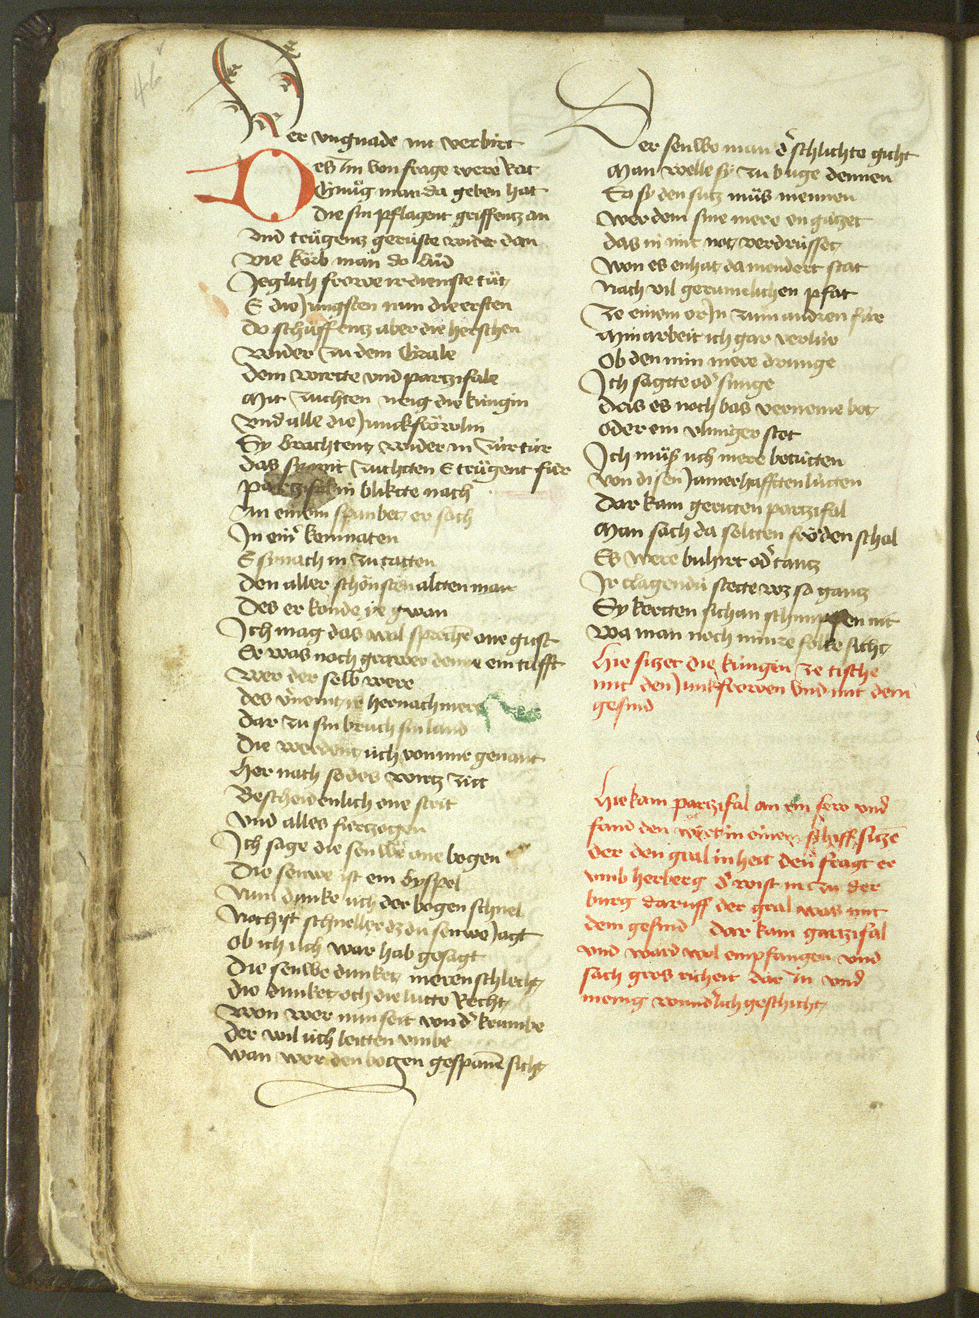 46
Der vngnade mit verbirt
Des im von frage were Rat
Gnůg man da geben hat
Die sin pflagent griffentz an
Vnd trůgentz gerůste wider dan
Vie korb man do lůd
Jeglich frowe ir dienste tůt
E die Jungsten nun die ersten
Do schůffentz aber die hersten
Wider zu dem Grale
Dem wirtte vnd partzifale
Mit zuchten neig die kungin
Vnd alle die Junckfröwlin
Sy brachtentz wider in zur tür
Das sy mit zuchten E trůgent für
Partzifal in blikte nach
An einem spanbet er sach
In einr kemnaten
E sy nach in zu tatten
Den aller schönsten altten man
Des er konde ye gwan
Ich mag das wol sprechē one guft
Er was noch grawer denne ein tufft
Wer der selb were
des vernemt ir hernach mere
Dar zu sin bruch sin land
Die werdent üch von mir genant
Her nach so des wirtz zitt
Bescheidenlich one strit
Vnd alles fürzogen
Ich sage die senwe one bogen
Die senwe ist ein byspel
Nun dunke üch der bogen schnel
Noch ist schneller dz die senwe Jagt
Ob ich üch war hab gesagt
Die senwe dunket meren schlecht
die dunket och die lutte Recht
Won wer nun seit von dͬ krumbe
der wil üch leitten vmbe
Wan wer den bogen gespanē sicht
Der senwe man dͬ schlichte gicht
Man welle sy zu buge dennen
So sy den sutz můs mennen
Wer dem sine mere en gůzet
das in mit not verdrüsset
Won es enhat da niendert stat
Nach vil gerumlichen pfat
Ze einem orͬ In zum andren für
Min arbeit ich gar verlür
Ob den min mere drunge
Ich sagtte odͬ sunge
Das es noch bas verneme bot
oder ein vlmiger stot
Ich můß üch mere betütten
Von disen Jamerhafftten lütten
Dar kam geritten partzifal
Man sach da seltten fröden schal
Es were buhirt odͬ tantz
Ir clagendü stette wz so gantz
Sy kertten sich an schimpfen nit
Wa man noch minre folke sicht
Hie sitzet die küngen ze tische
mit den Junkfrowen vnd mit dem
gesind
Hie kam partzifal an ein sew vnd
fand den wirt in einem schiff sitzē
der den gral in heit den fragt er
vmb herberg dͬ wist in zu der
burg daruff der gral was mit
dem gesind dar kam partzifal
vnd ward wol empfangen vnd
sach gros richeit dar in vnd
menig wundͬlich geschicht